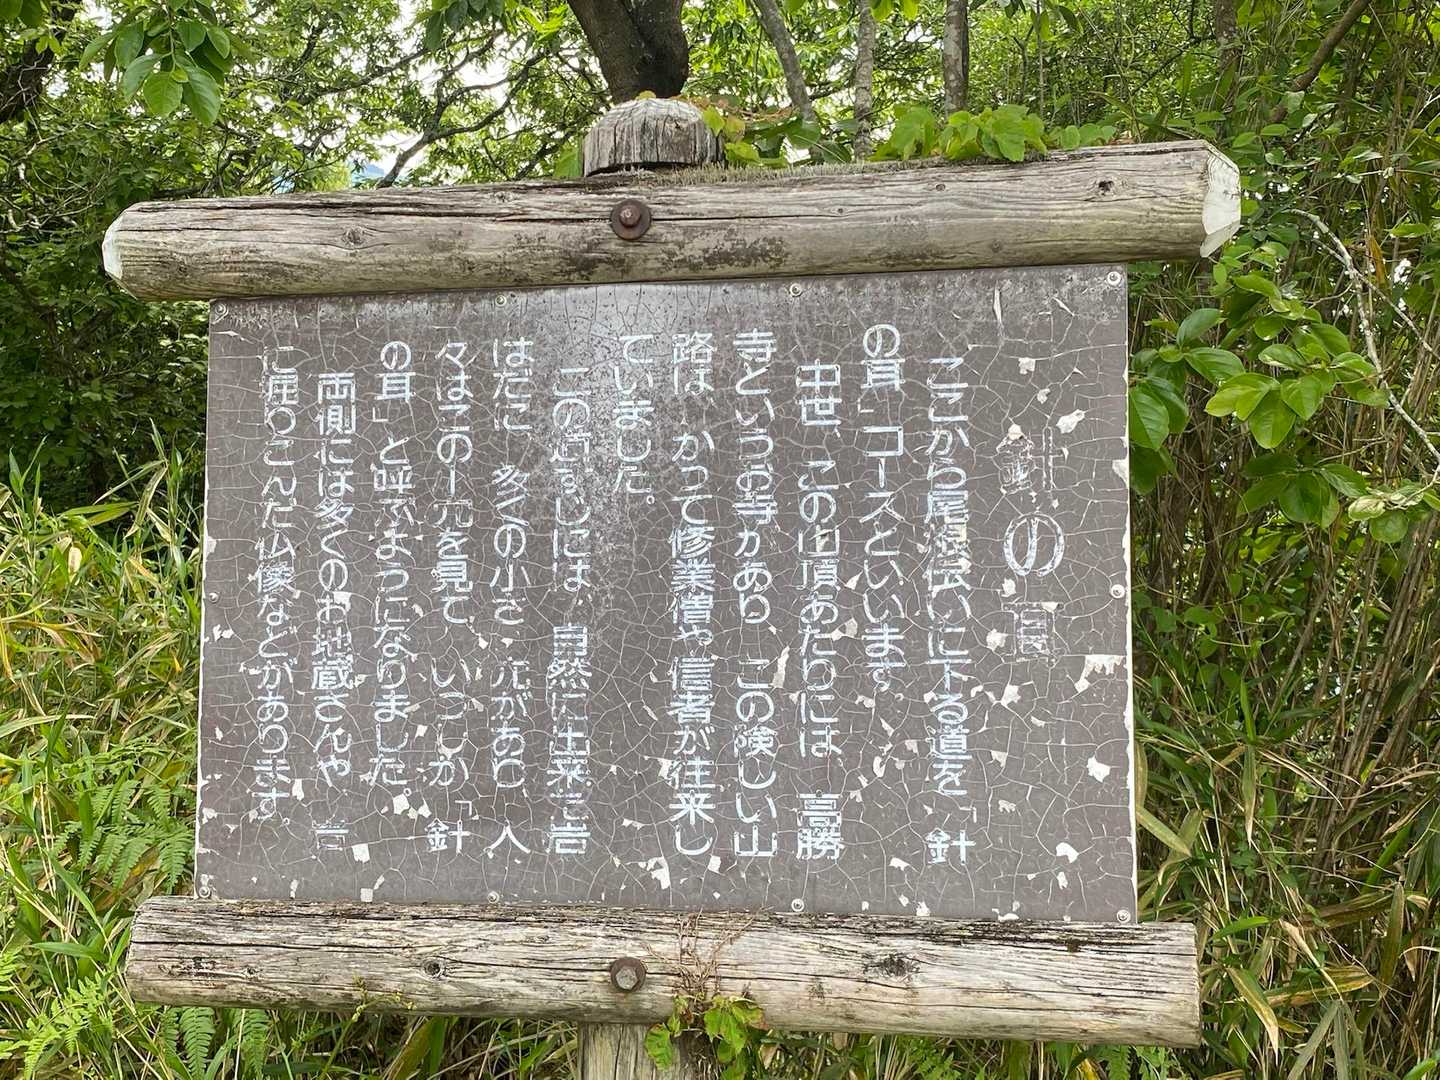 針の耳
ここから尾根伝いに下る道を、「針
の耳」コースといいます。
中世、この山頂あたりには、高勝
寺というお寺があり、この険しい山
路は、かって修業僧や信者が往来し
ていました。
この道すじには、自然に出来た岩
はだに、多くの小さい穴があり、人
々はこの穴を見て、いつしか「針
の耳」と呼ぶようになりました。
両側には多くのお地蔵さんや、岩
に掘りこんだ仏像などがあります。